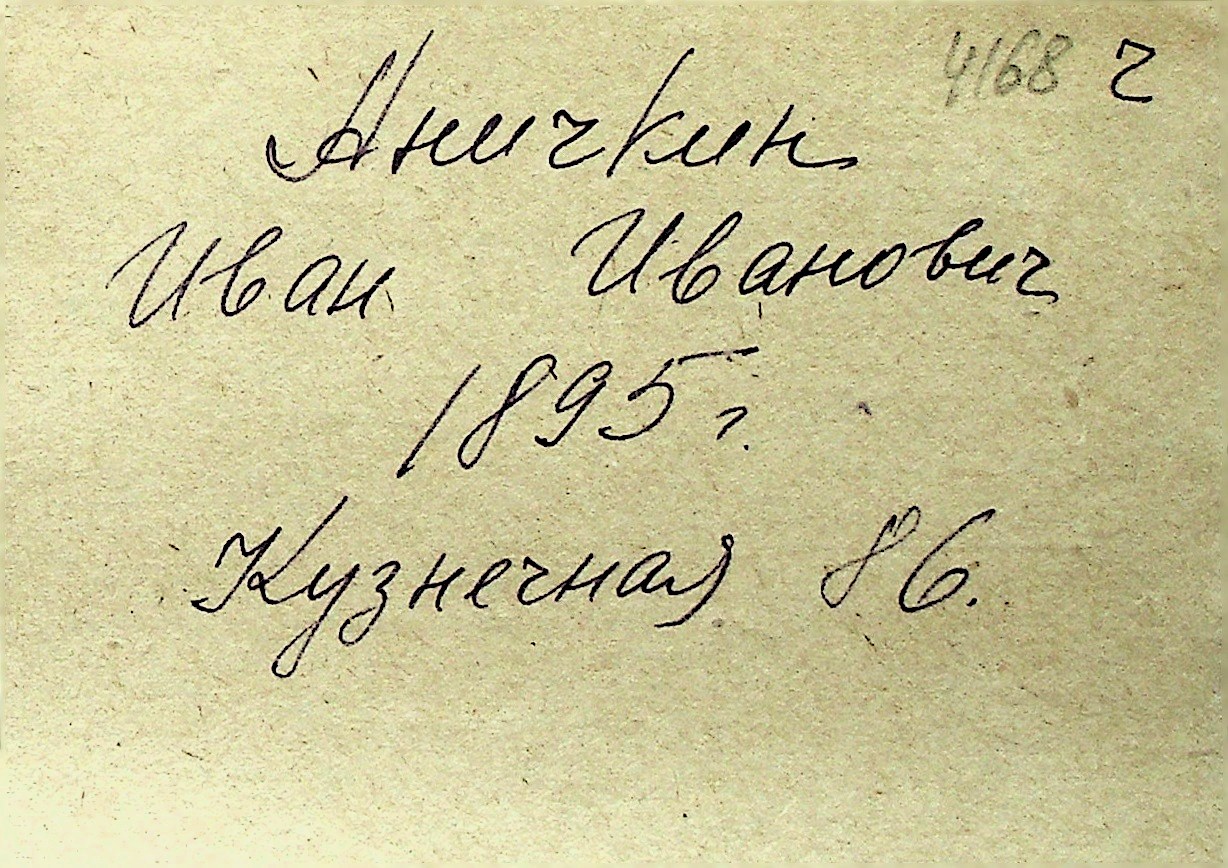 4168 ч
Аничкин
Иван Иванович
1895 г.
Кузнечная 86.